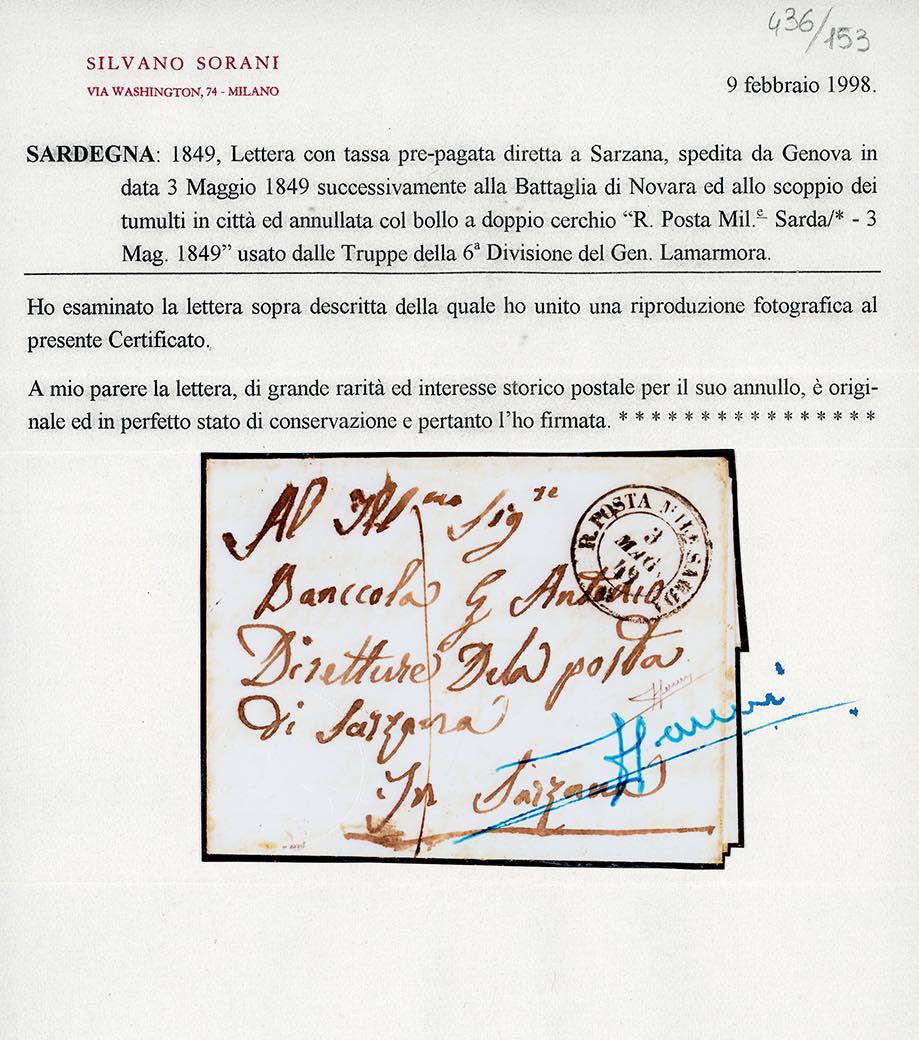 436/153
SILVANO SORANI
VIA WASHINGTON, 74 - MILANO
9 febbraio 1998.
SARDEGNA: 1849, Lettera con tassa pre-pagata diretta a Sarzana, spedita da Genova in
data 3 Maggio 1849 successivamente alla Battaglia di Novara ed allo scoppio dei
tumulti in città ed annullata col bollo a doppio cerchio “R. Posta Mil.e Sarda/* - 3
Mag. 1849” usato dalle Truppe della 6ª Divisione del Gen. Lamarmora.
Ho esaminato la lettera sopra descritta della quale ho unito una riproduzione fotografica al
presente Certificato.
A mio parere la lettera, di grande rarità ed interesse storico postale per il suo annullo, è origi-
nale ed in perfetto stato di conservazione e pertanto l’ho firmata. * * * * * * * * * * * * * * * *
Al Ill.mo Sig.re
R. POSTA MIL.E SARDA
3
MAG.
49
Banccola G Antonio
Diretture Dela posta
Di Sarzana
In Sarzana